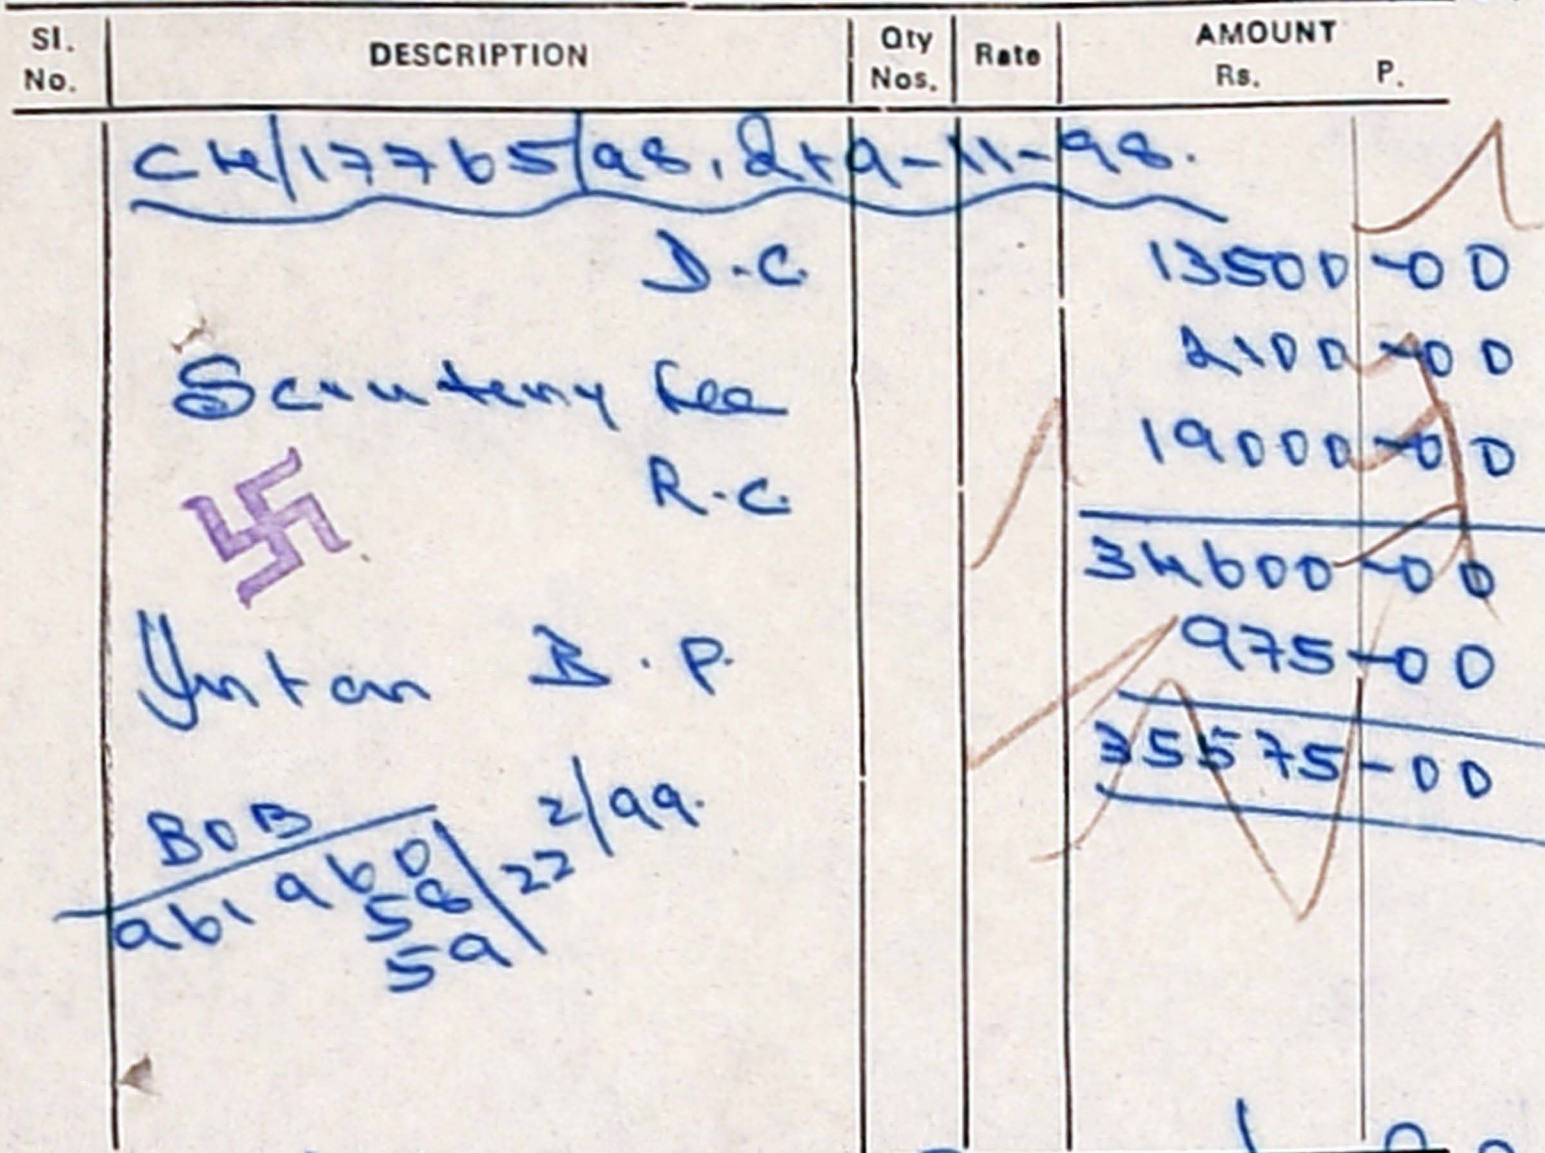 Sl. No. DESCRIPTION Qty Nos. Rate AMOUNT Rs. P.
CH/17765/98. dt 9-11-98.
D.C. 13500-00
Scruteny fee 2100-00
R.C. 19000-00
34600-00
B.P. 975-00
35575-00
BOB
961960
58
59
22/2/99.